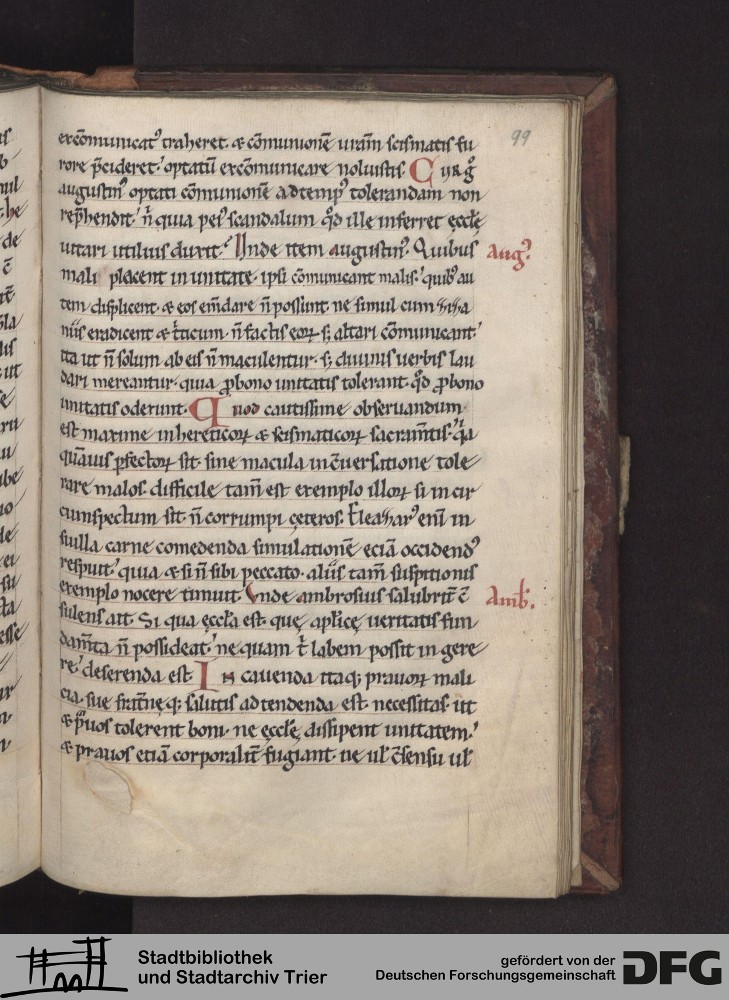 99
excōmunicat᷒ traheret. & cōmunionē urām scismatis fu
rore p̄cideret. optatū excōmunicare noluistis. C ur g̊
augustin᷒ optati cōmunionē ad temp᷒ tolerandam non
rep̄hendit. n̄ quia pei᷒ scandalum qd̄ ille inferret ęcclę
uitari utilius duxit. Unde item augustin᷒. Quibus
Aug᷒.
mali placent in unitate. ipsi cōmunicant malis. quib᷒ au
tem displicent. & eos em̄dare n̄ possunt. ne simul cum ziza
niis eradicent & t̄ticum. n̄ factis eoꝝ. s; altari cōmunicant.
ita ut n̄ solum ab eis n̄ maculentur. s; diuinis uerbis lau
dari mereantur. quia ꝓ bono unitatis tolerant. qd̄ ꝓ bono
unitatis oderunt. Q uod cautissime obseruandum
est maxime in hereticoꝝ & scismaticoꝝ sacram̄tis. q̄a
quāuis ꝑfectoꝝ sit. sine macula in c̄uersatione tole
rare malos. difficile tam̄ est exemplo illoꝝ si in cir
cumspectum sit. n̄ corrumpi cęteros. Eleazar᷒ enī in
suilla carne comedenda simulationē eciā occidend᷒
respuit. quia & si n̄ sibi peccato. aliis tam̄ suspitionis
exemplo nocere timuit. Unde ambrosius salubrit̄ c̄
Amb̄.
sulens ait. Si qua ęccl̄a est. quę apl̄icę ueritatis fun
dam̄ta n̄ possideat. ne quam t̄ labem possit in gere
re. deserenda est. I n cauenda itaq; prauoꝝ mali
cia. suę frat̄nęq; salutis ad tendenda est necessitas. ut
& p̄uos tolerent boni. ne ęcclę dissipent unitatem.
& prauos etiā corporalit̄ fugiant. ne ul̄ c̄sensu ul̄
Stadtbibliothek
und Stadtarchiv Trier
gefördert von der
Deutschen Forschungsgemeinschaft
DFG